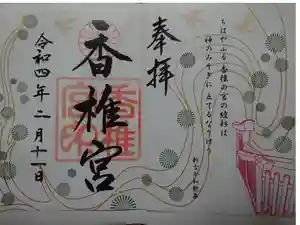 ちはやふる 香椎の宮の綾杉は
神のみそぎに 立てるなりけり
新古今和歌集
奉拝
香椎宮
香椎宮印
令和四年二月十一日